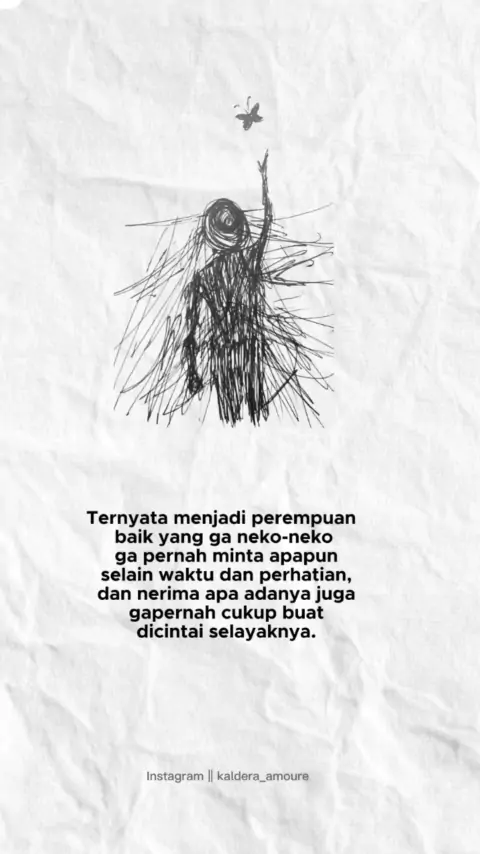 Ternyata menjadi perempuan
baik yang ga neko-neko
ga pernah minta apapun
selain waktu dan perhatian,
dan nerima apa adanya juga
gapernah cukup buat
dicintai selayaknya.
Instagram || kaldera_amoure